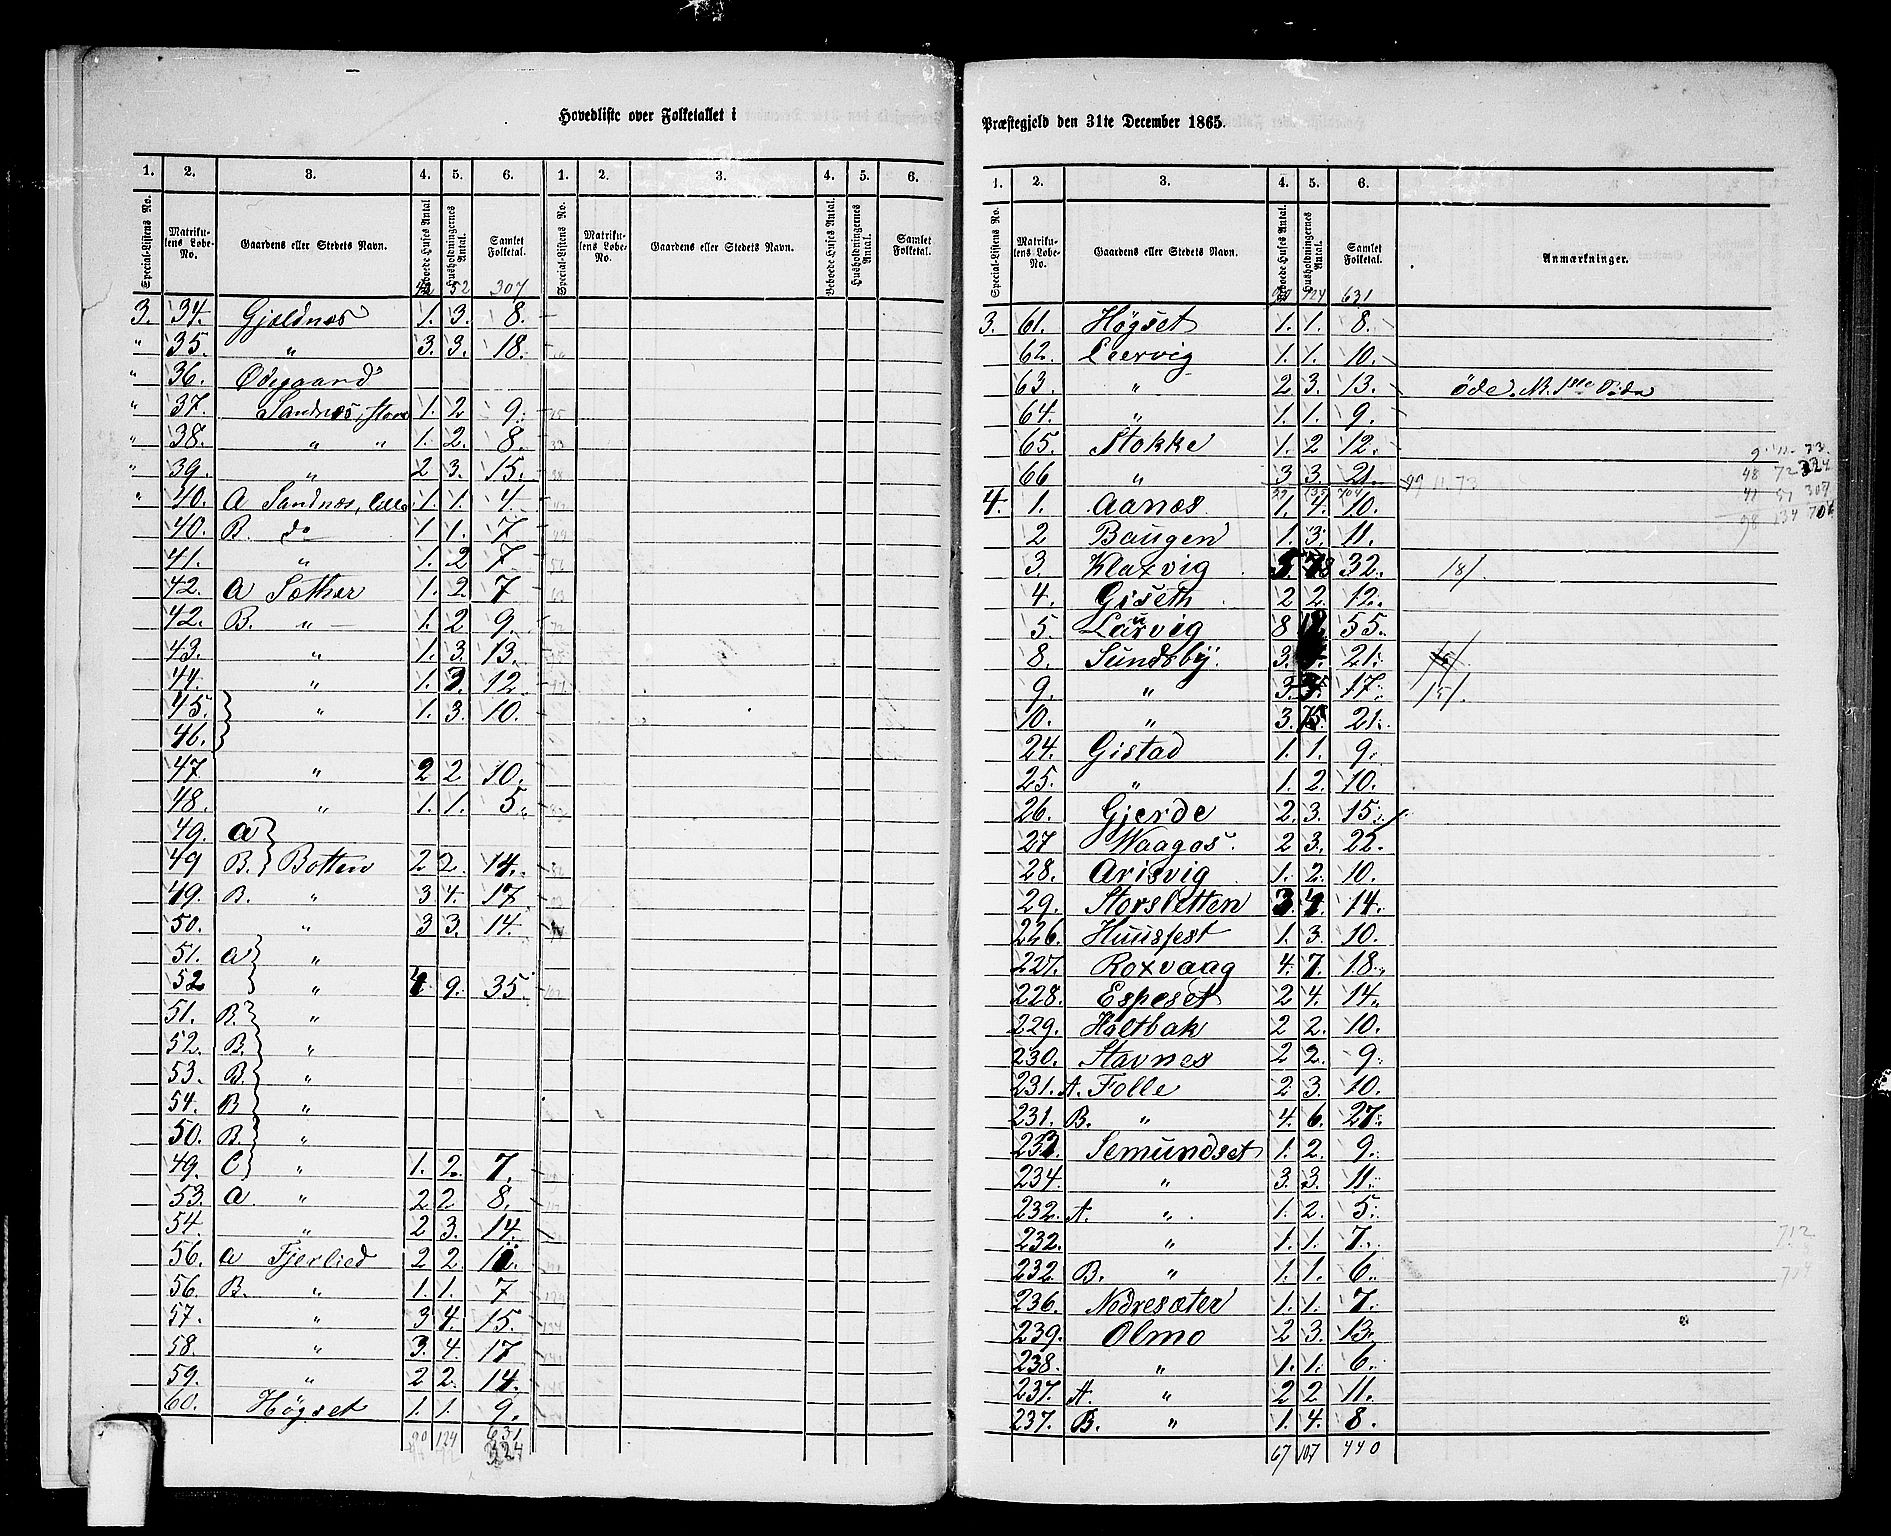 Hovedliste over Folketallet i
1. 2. 3. 4. 5. 6. 1. 2. 3. 4. 5. 6.
Special-Listens No. Matrikulens Løbe-No. Gaardens eller Stedets Navn. Beboede Huses Antal Husholdningernes Antal Samlet Folketal. Special-Listens No. Matrikulens Løbe-No. Gaardens eller Stedets Navn. Beboede Huses Antal. Husholdningernes Antal. Samlet Folketal.
52 307
3. 34. Gjeldnæs 1. 3. 8.
" 35. " 3. 3. 18.
" 36. Ødegaard
" 37. Sandnæs, store 1. 2 9.
" 38. " " 1. 2. 8.
" 39. " 2 3. 15.
" 40. A Sandnæs, lille 1. 1. 4.
40. B. do 1 1. 7
41. " 1. 2 7.
42. A Sæther 1. 2. 7
42. B. " 1. 2 9.
43. " 1. 3. 13.
44. " 1. 3. 12.
45. } " 1. 3. 10.
46. }
47 " 2 2 10.
48. " 1. 1. 5.
49. A }
49 B. } Botten 2 2. 14.
49. B. " 3 4. 17.
50. " 3 3. 14.
51. A } "
52 } " 4 9. 35.
51. B. } "
52. B. } "
53. B. } "
54. B } "
50. B. } "
49. C } " 1. 2. 7.
53. A " 2 2 8.
54. " 2 3. 14.
56. A Fjerlied 2 2 11.
56. B. " 1. 1. 7
57. " 3 4. 15.
58. " 3. 4. 17
59. " 2 2. 14.
60. Høgset 1. 1. 9.
90 124 631
324
Præstegjeld den 31te December 1865.
1. 2. 3. 4. 5. 6.
Special-Listens No. Matrikulens Løbe-No. Gaardens eller Stedets Navn. Beboede Huses Antal. Husholdningernes Antal. Samlet Folketal. Anmærkninger.
90 124 631
3. 61. Høgset 1. 1. 8.
62. Leervig 1. 1. 10.
63. " 2. 3. 13. øde. N.
64. " 1. 1. 9.
65. Stokke 1. 2 12.
66 " 3. 3. 21.
4. 1. Aanes 1. 4. 10.
2 Baugen 1. 3. 11.
3. Klaxvig 5. 32. 18/.
4. Giseth 2 2. 12.
5. Laurvig 8 55.
8. Sundsby. 3. 21.
9. " 3. 17. 15/.
10. " 3. 5 21.
24. Gistad 1. 1. 9.
25. " 1. 2. 10.
26. Gjerde 2. 3. 15.
27 Waagos. 2 3. 22.
28. Arisvig 1. 2. 10.
29. Storsletten 3. 4. 14.
226. Huusfest 1. 3. 10.
227. Roxvaag 4. 7. 18.
228. Espeset 2 4. 14.
229. Holtbak 2 2. 10.
230. Stavnes 2 2. 9.
231. A. Folle 2. 3. 10.
231. B. " 4. 6. 27.
233 Semundset 1. 2. 9.
234. " 3. 3. 11.
232. A. " 1. 2. 5.
232. " 1. 1. 7.
232 B. " 1. 1. 6.
236. Nedresæter 1. 1. 7.
239. Olmo 2 3. 13.
238. " 1. 1. 6.
237. A. " 2 2. 11.
237. B. " 1. 4. 8.
67 107 440
9 11 73
48 72 324
41 51 307
98 134 704
712
704